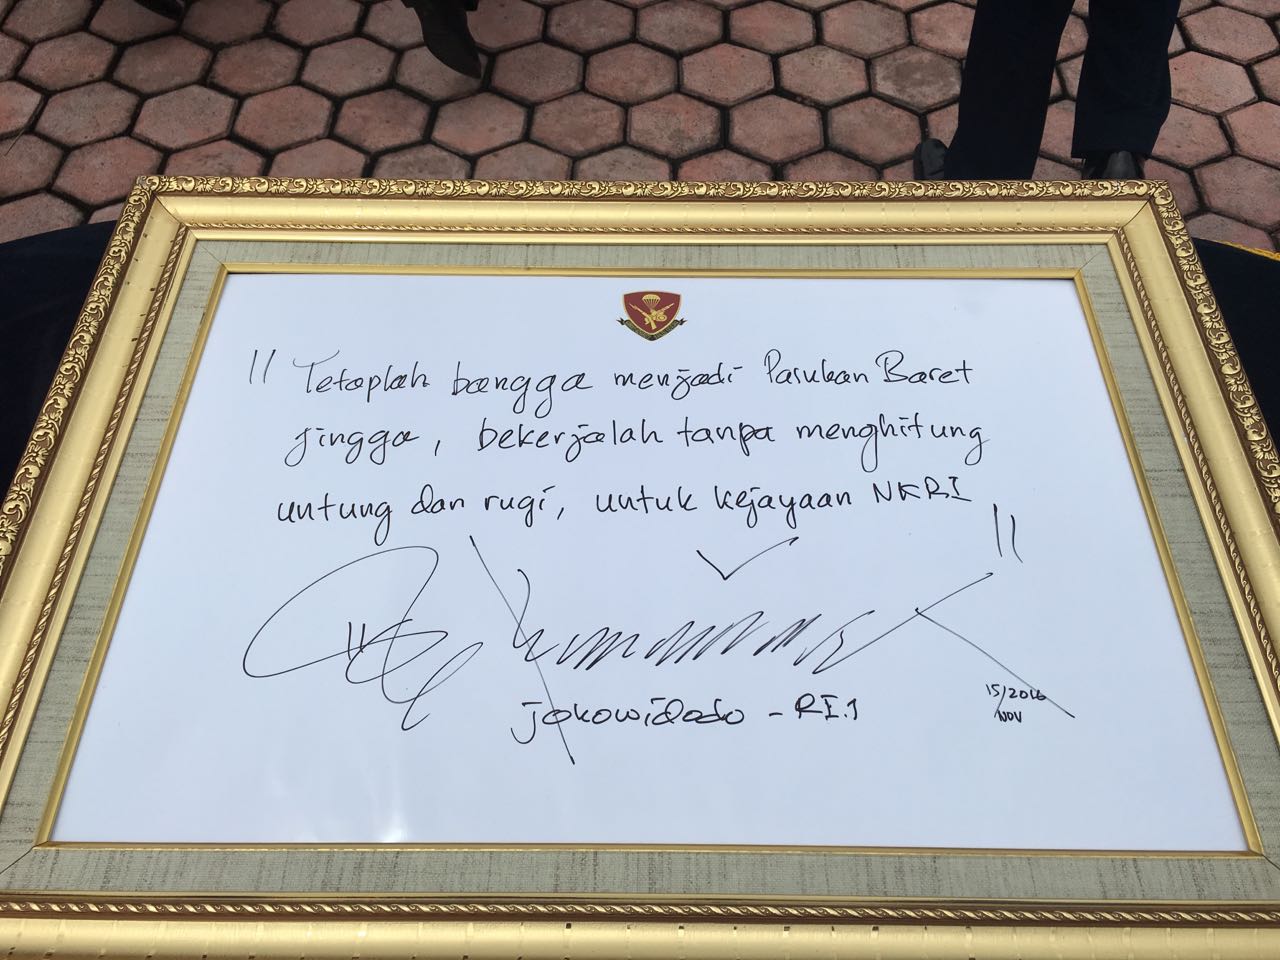 " Tetaplah bangga menjadi Pasukan Baret
jingga, bekerjalah tanpa menghitung
untung dan rugi, untuk kejayaan NKRI "
jokowidodo - RI.1
15/2016
NOV